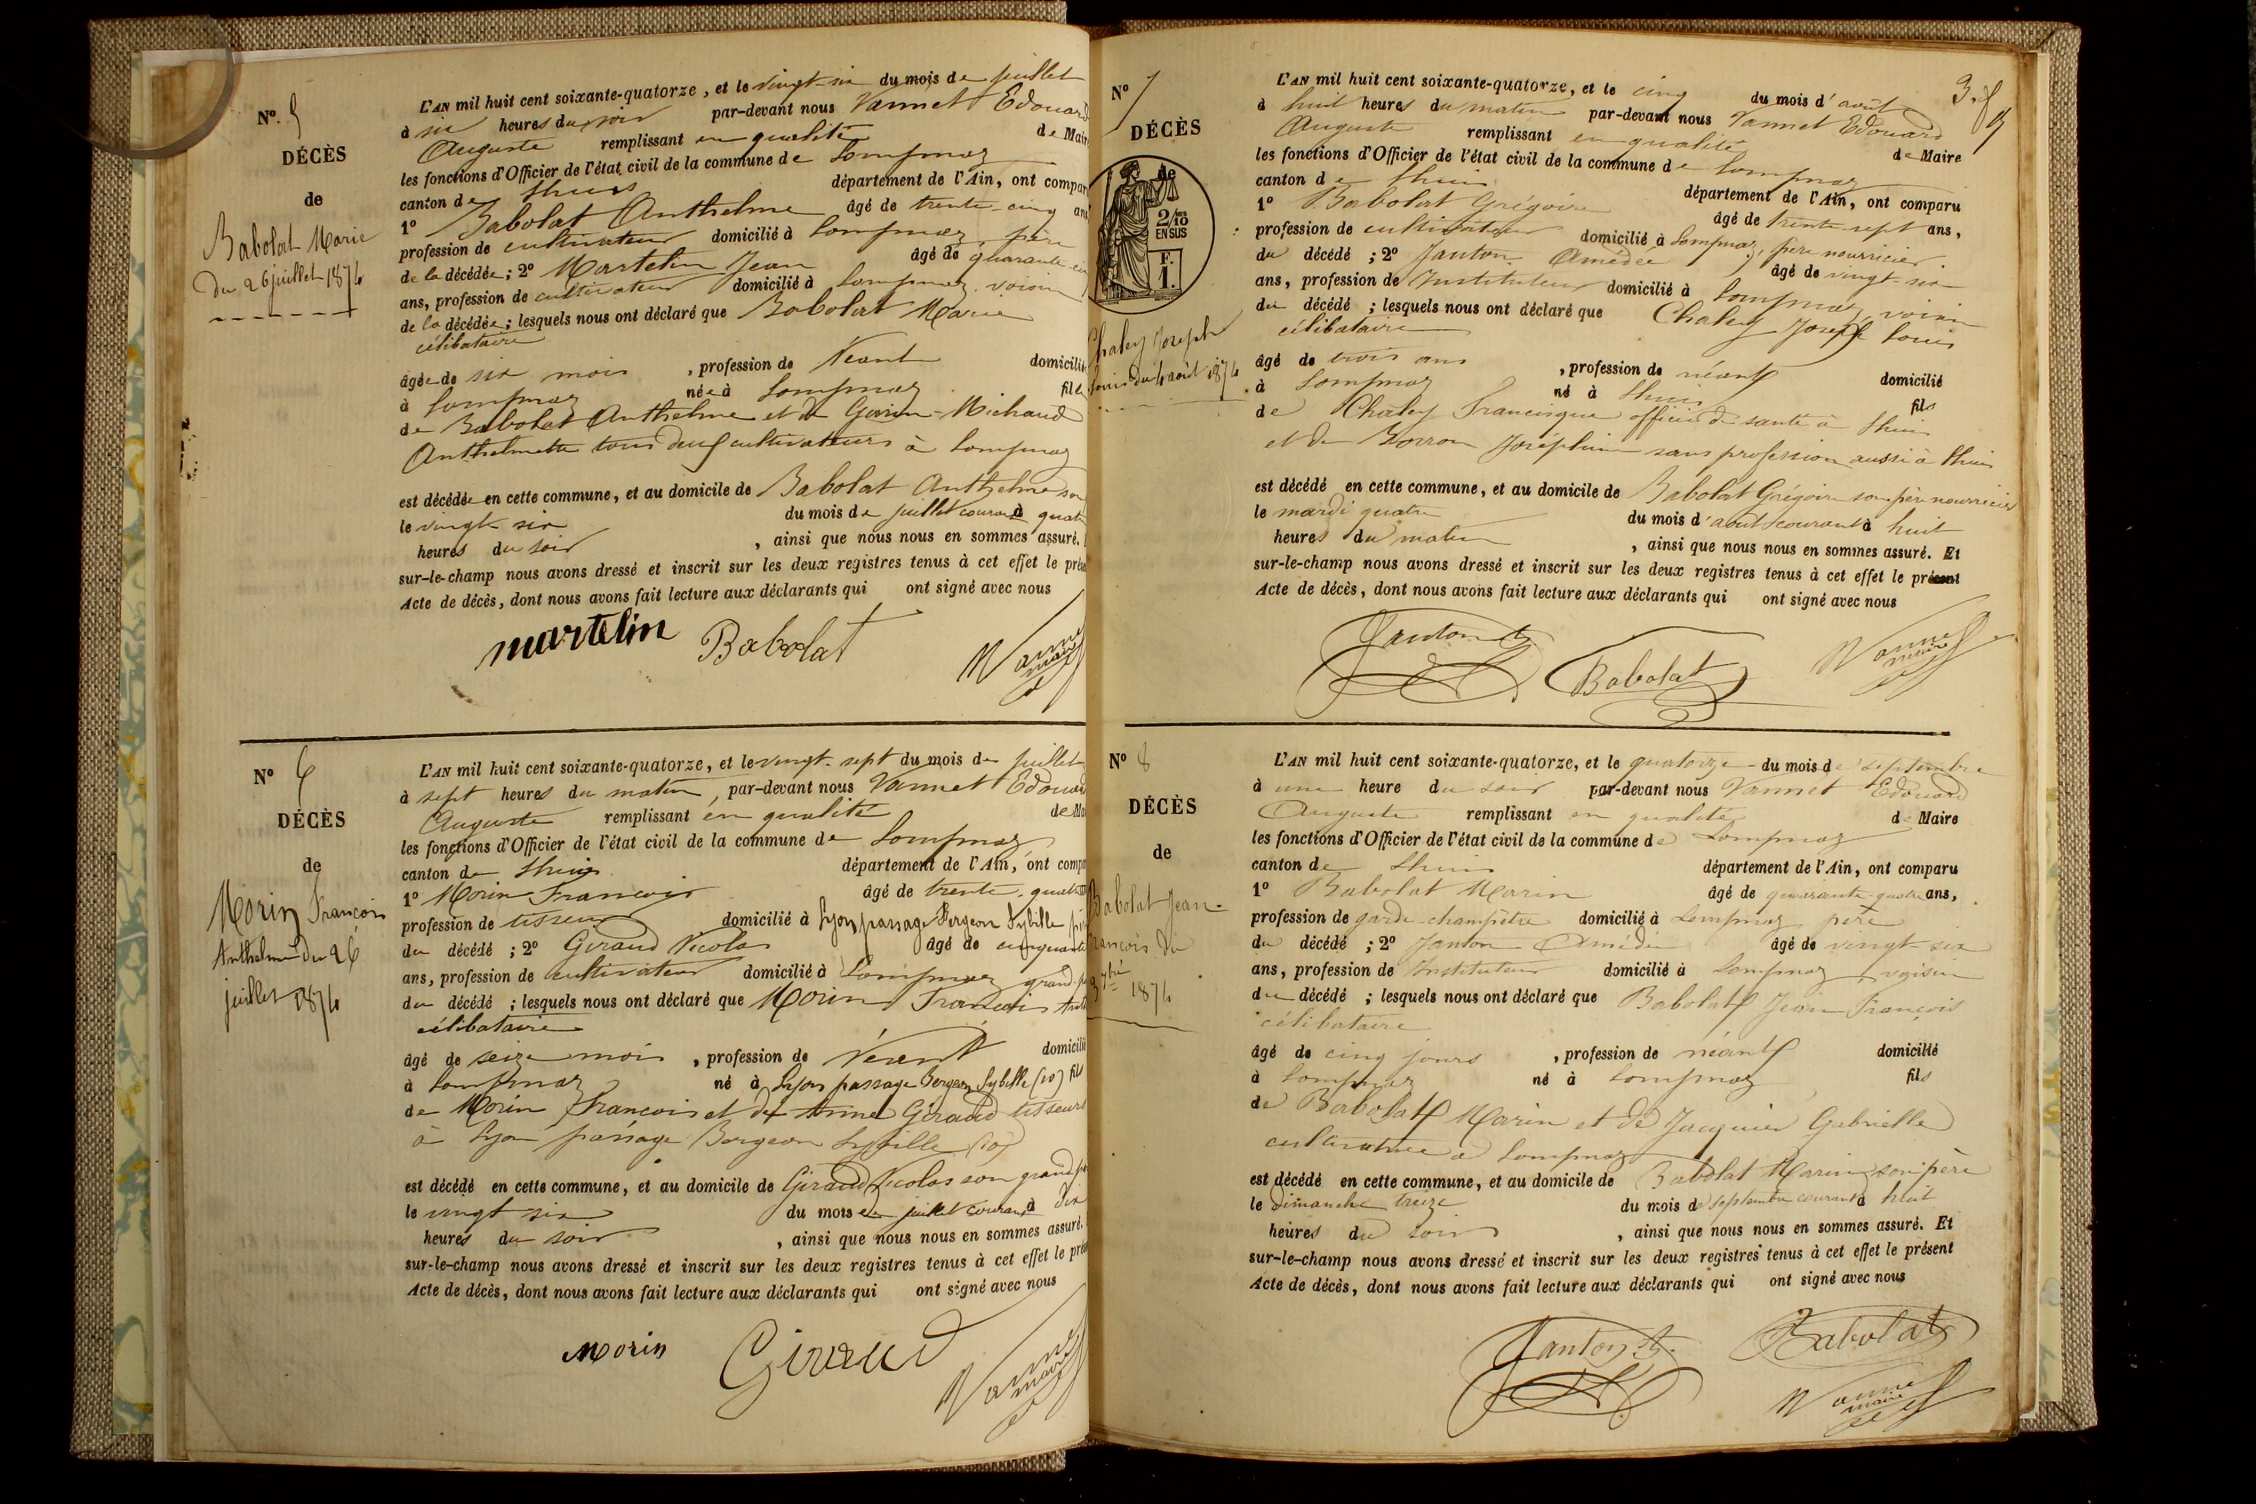 N° 5
DÉCÈS
de
Babolat Marie
Du 26 juillet 1874
L'AN mil huit cent soixante-quatorze, et le vingt-six du mois de juillet
à six heures du soir par-devant nous Vannet Edouard
Auguste remplissant en qualité de Maire
les fonctions d'Officier de l'état civil de la commune de Lompnaz
canton de Lhuis département de l'Ain, ont compar
1° Babolat Anthelme âgé de trente-cinq ans
profession de cultivateur domicilié à Lompnaz, père
de la décédée; 2° Martelin Jean âgé de quarante-cinq
ans, profession de cultivateur domicilié à Lompnaz voisin
de la décédée; lesquels nous ont déclaré que Babolat Marie
célibataire
âgée de six mois, profession de Néant domicilié
à Lompnaz née à Lompnaz fille
de Babolat Anthelme et de Michaud
Anthelmette tous deux cultivateurs à Lompnaz
est décédée en cette commune, et au domicile de Babolat Anthelme son
le vingt six du mois de juillet courant à quatre
heures du soir, ainsi que nous nous en sommes assuré.
sur-le-champ nous avons dressé et inscrit sur les deux registres tenus à cet effet le prés
Acte de décès, dont nous avons fait lecture aux déclarants qui ont signé avec nous
martelin Babolat Vannet
maire
N° 6
DÉCÈS
de
Morin François
Anthelme du 26
juillet 1874
L'AN mil huit cent soixante-quatorze, et le vingt-sept du mois de juillet
à sept heures du matin, par-devant nous Vannet Edouard
Auguste remplissant en qualité de Ma
les fonctions d'Officier de l'état civil de la commune de Lompnaz
canton de Lhuis département de l'Ain, ont compa
1° Morin François âgé de trente-quatre
profession de tisseur domicilié à Lyon passage Bergeon Sybille
du décédé; 2° Giraud Nicolas âgé de cinquante
ans, profession de cultivateur domicilié à Lompnaz grand-pè
du décédé; lesquels nous ont déclaré que Morin François Anth
célibataire
âgé de seize mois, profession de Néant domicilié
à Lompnaz né à Lyon passage Bergeon Sybille (10) fils
de Morin François et de Anne Giraud tisseurs
à Lyon passage Bergeon Sybille (10)
est décédé en cette commune, et au domicile de Giraud Nicolas son grand pè
le vingt six du mois de juillet courant à dix
heures du soir, ainsi que nous nous en sommes assuré.
sur-le-champ nous avons dressé et inscrit sur les deux registres tenus à cet effet le prés
Acte de décès, dont nous avons fait lecture aux déclarants qui ont signé avec nous
Morin Giraud Vannet
maire
N° 7
DÉCÈS
de
2/10
EN SUS
F.
1.
Chaley Joseph
Louis du 4 août 1874
L'AN mil huit cent soixante-quatorze, et le cinq du mois d'août
à huit heures du matin par-devant nous Vannet Edouard
Auguste remplissant en qualité de Maire
les fonctions d'Officier de l'état civil de la commune de Lompnaz
canton de Lhuis département de l'Ain, ont comparu
1° Babolat Grégoire âgé de trente-sept ans,
profession de cultivateur domicilié à Lompnaz, père nourricier
du décédé; 2° Janton Amédée âgé de vingt-six
ans, profession de Instituteur domicilié à Lompnaz, voisin
du décédé; lesquels nous ont déclaré que Chaley Joseph Louis
célibataire
âgé de trois ans, profession de néant domicilié
à Lompnaz né à Lhuis fils
de Chaley Francisque officier de santé à Lhuis
et de Borron Joséphine sans profession aussi à Lhuis
est décédé en cette commune, et au domicile de Babolat Grégoire son père nourricier
le mardi quatre du mois d'août courant à huit
heures du matin, ainsi que nous nous en sommes assuré. Et
sur-le-champ nous avons dressé et inscrit sur les deux registres tenus à cet effet le présent
Acte de décès, dont nous avons fait lecture aux déclarants qui ont signé avec nous
Janton A. Babolat Vannet
maire
N° 8
DÉCÈS
de
Babolat Jean-
François du
1874
L'AN mil huit cent soixante-quatorze, et le quatorze du mois de septembre
à une heure du soir par-devant nous Vannet Edouard
Auguste remplissant en qualité de Maire
les fonctions d'Officier de l'état civil de la commune de Lompnaz
canton de Lhuis département de l'Ain, ont comparu
1° Babolat Marin âgé de quarante-quatre ans,
profession de garde-champêtre domicilié à Lompnaz père
du décédé; 2° Janton Amédée âgé de vingt-six
ans, profession de Instituteur domicilié à Lompnaz, voisin
du décédé; lesquels nous ont déclaré que Babolat Jean François
célibataire
âgé de cinq jours, profession de néant domicilié
à Lompnaz né à Lompnaz fils
de Babolat Marin et de Jacquier Gabrielle
cultivatrice à Lompnaz
est décédé en cette commune, et au domicile de Babolat Marin son père
le Dimanche treize du mois de septembre courant à huit
heures du soir, ainsi que nous nous en sommes assuré. Et
sur-le-champ nous avons dressé et inscrit sur les deux registres tenus à cet effet le présent
Acte de décès, dont nous avons fait lecture aux déclarants qui ont signé avec nous
Janton A. Babolat
Vannet
maire